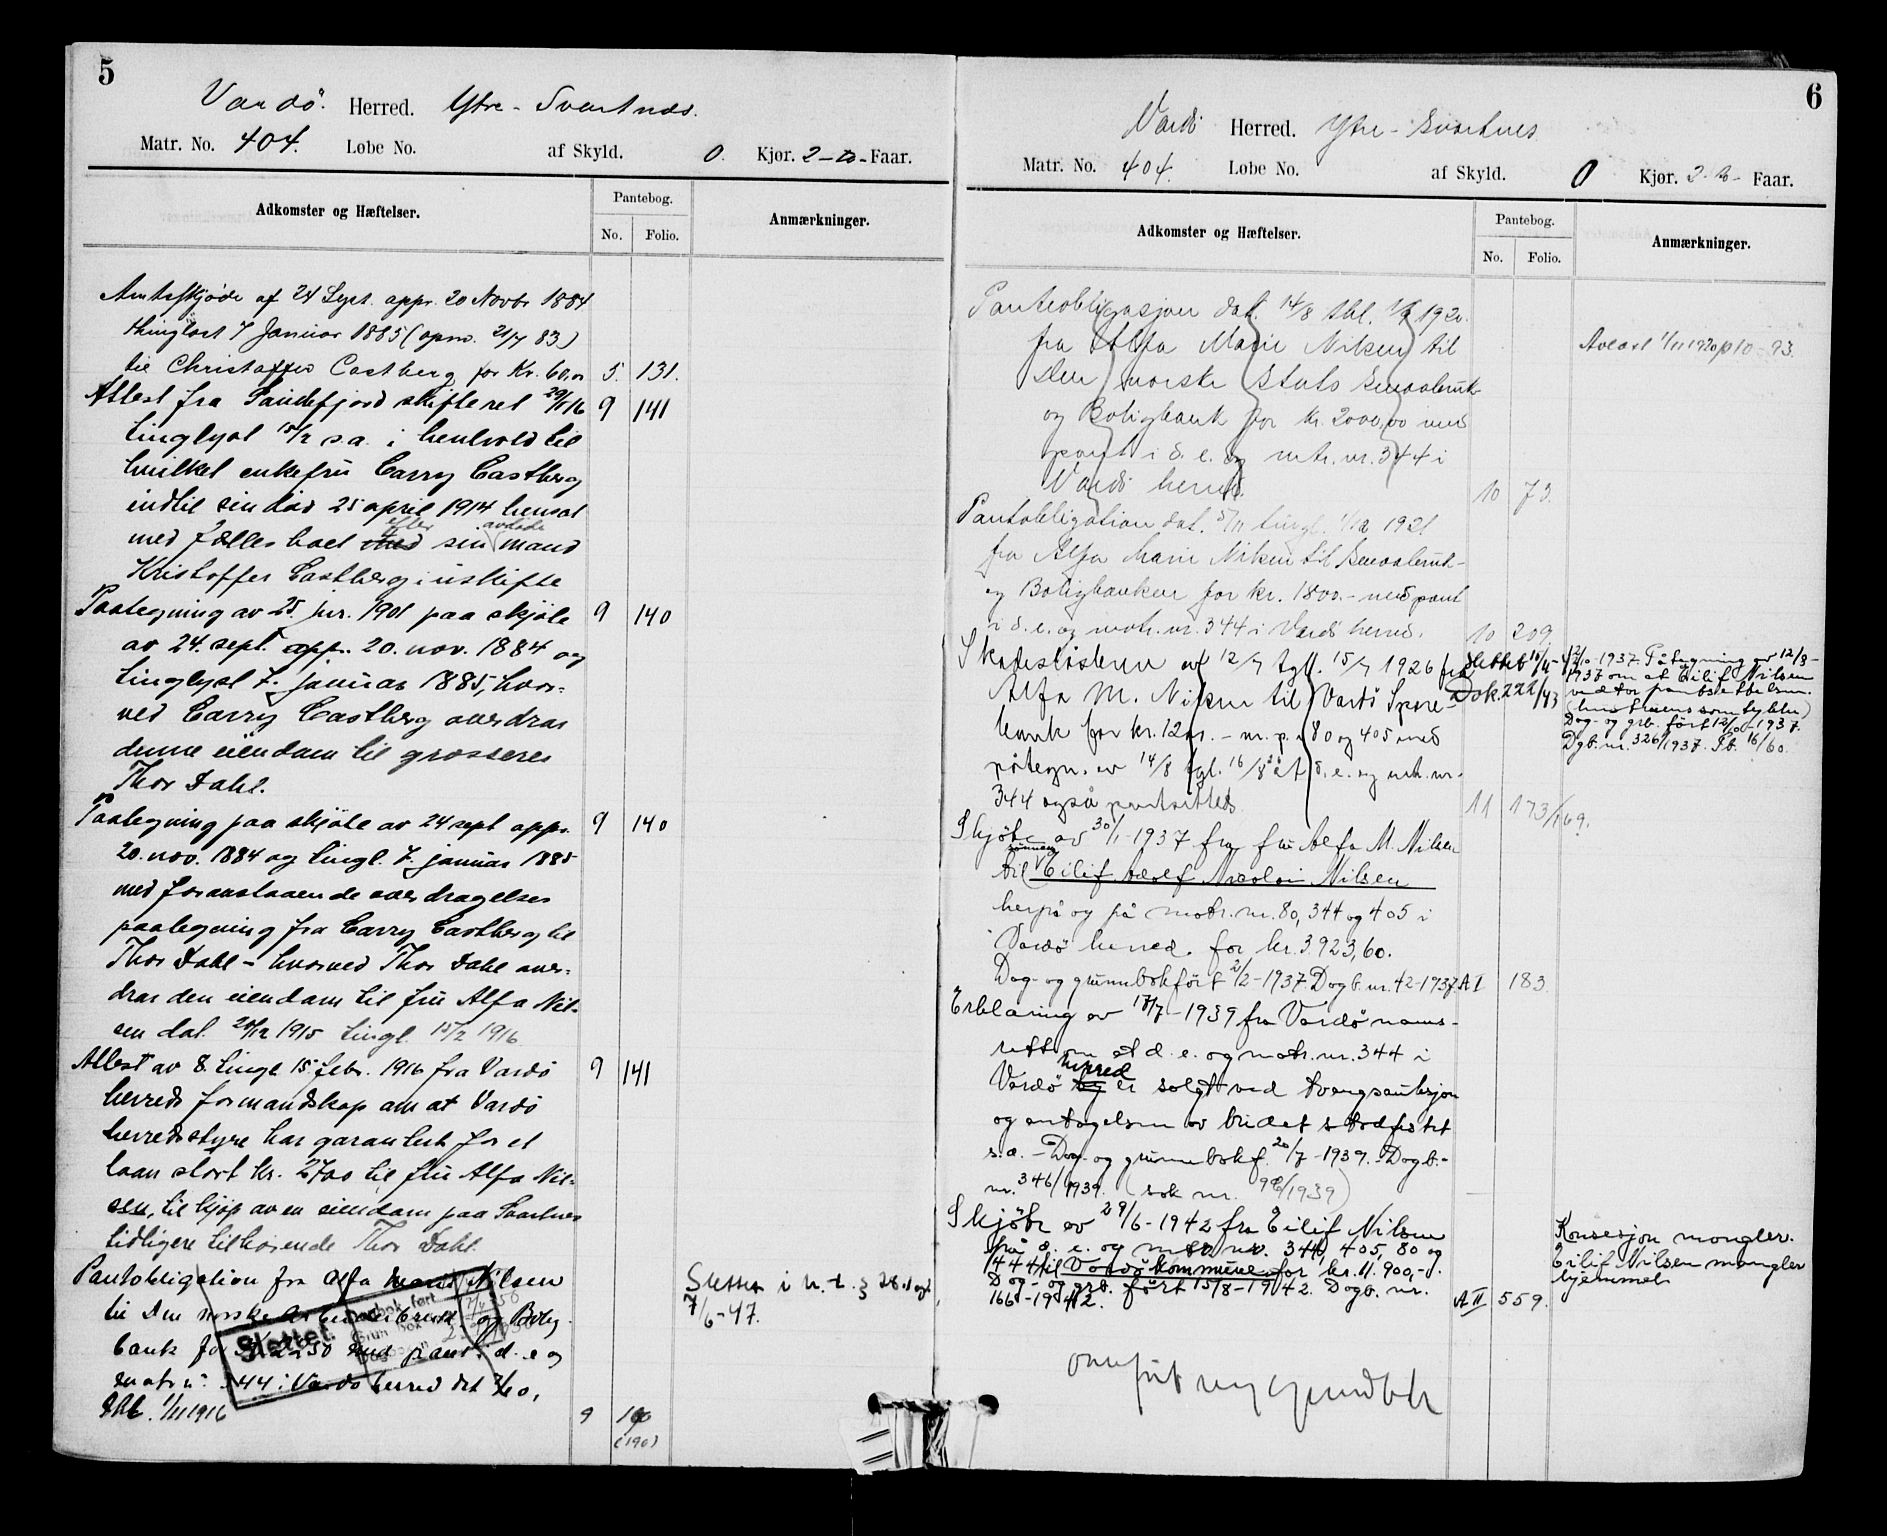 5
Vardö. Herred. Ytre-Svartnæs.
Matr. No. 404. Løbe No. af Skyld. 0. Kjør. 2-10-Faar.
Adkomster og Hæftelser.
Pantebog.
No. Folio.
Anmærkninger.
Amtsskjøde af 24 Sept. appr. 20 Novbr 1884
thinglæst 7 Januar 1885 (opm. 21/7 83)
til Christoffer Castberg for Kr. 60,00 5. 131.
Attest fra Sandefjord skifteret 29/1 16 9 141
tinglyst 15/2 s.a. i henhold til
hvilket enkefru Carry Castberg
indtil sin død 25 april 1914 hensat
efter avdøde
med fællesboet med sin mand
Kristoffer Castberg i uskifte
Paategning av 25. jnr. 1901 paa skjøte 9 140
av 24. sept. appr. 20. nov. 1884 og
tinglyst 7. januar 1885, hvor-
ved Carry Castberg overdrar
denne eiendom til grosserer
Thor Dahl.
Paategning paa skjøte av 24 sept appr. 9 140
20. nov. 1884 og tingl. 7. januar 1885
med foranstaaende overdragelses
paategning fra Carry Castberg til
Thor Dahl - hvorved Thor Dahl over-
drar den eiendom til fru Alfa Nil-
sen dat. 28/12 1915 tingl. 15/2 1916
Attest av 8. tingl 15 febr. 1916 fra Vardö 9 141
herreds formandskap om at Vardö
herredsstyre har garantert for et
laan stort kr. 2700 til fru Alfa Nil-
sen, til kjøp av en eiendom paa Svartnes
tidligere tilhørende Thor Dahl.
Pantobligation fra Alfa Marie Nilsen
til Den norske Arbeiderbruk og Bolig-
bank for 2250 med pant i d. e og
matr nr 344 i Vardö herred dat 3/10,
tbl. 1/11 1916 9 190
(190)
Slettet
Dagbok ført
Slettet i h. t. § 28. i tgl.
7/6-47.
6
Vardö Herred. Ytre-Svartnes
Matr. No. 404. Løbe No. af Skyld. 0 Kjør. 2-10- Faar.
Adkomster og Hæftelser.
Pantebog.
No. Folio.
Anmærkninger.
Panteobligasjon dat. 14/8 tbl. 1/9 1920.
fra Alfa Marie Nilsen til
Den norske stats småbruk-
og Boligbank for kr. 2000,00 med
pant i d. e. og mtr. nr. 344 i
Vardö herred. 10 73.
Avlæst 1/11 1920 p 10 - 93.
Pantobligation dat. 5/11 tingl. 1/12 1921
fra Alfa Marie Nilsen til Småbruk-
og Boligbanken for kr. 1800.- med pant
i d. e. og matr. nr. 344 i Vardö herred. 10 209.
Skadesløsbrev av 12/7 tgl. 15/7 1926 fra
Alfa M. Nilsen til Vardö Spare-
bank for kr. 1200.- m. p. i 80 og 405 med
påtegn. av 14/8 tgl. 16/8 at d. e. og mtr. nr.
344 også pantsettes. 11 173/169.
Slettet 15/4-43
Dok. 222/43
2/10-1937. Påtegning av 12/8-
1937 om at Eilif Nilsen
vedtar pantsettelsen.
(hans fruens samtykke)
Dag- og grb. ført 12/10-1937.
Dgb. nr. 326/1937. Pb. 16/60.
Skjöte av 30/1-1937 fra fru Alfa M. Nilsen
sønnen
til Eilif Adolf Nicolai Nilsen
herpå og på matr. nr. 80, 344 og 405 i
Vardø herred. for kr. 3.923,60.
Dag- og grunnbokført 2/2-1937. Dagb. nr. 42-1937. A I 183.
Erklæring av 18/7-1939 fra Vardø nams-
rett om at d. e. og matr. nr. 344 i
herred
Vardø og er solgt ved tvangsauksjon
og antagelsen av budet stadfestet
s.d. - Dag- og grunnbokf. 20/7-1939. - Dagb.-
nr. 346/1939. (sak nr. 98/1939)
Skjöte av 29/6-1942 fra Eilif Nilsen
på d. e. og matr. nr. 344, 405, 80 og
1444 til Vardø kommune for kr. 11.900,-.
Dag- og grb. ført 15/8-1942. Dagb. nr.
166-1942. A II 559.
Konsesjon mangler.
Eilif Nilsen mangler
hjemmel.
Overført ny grundbok